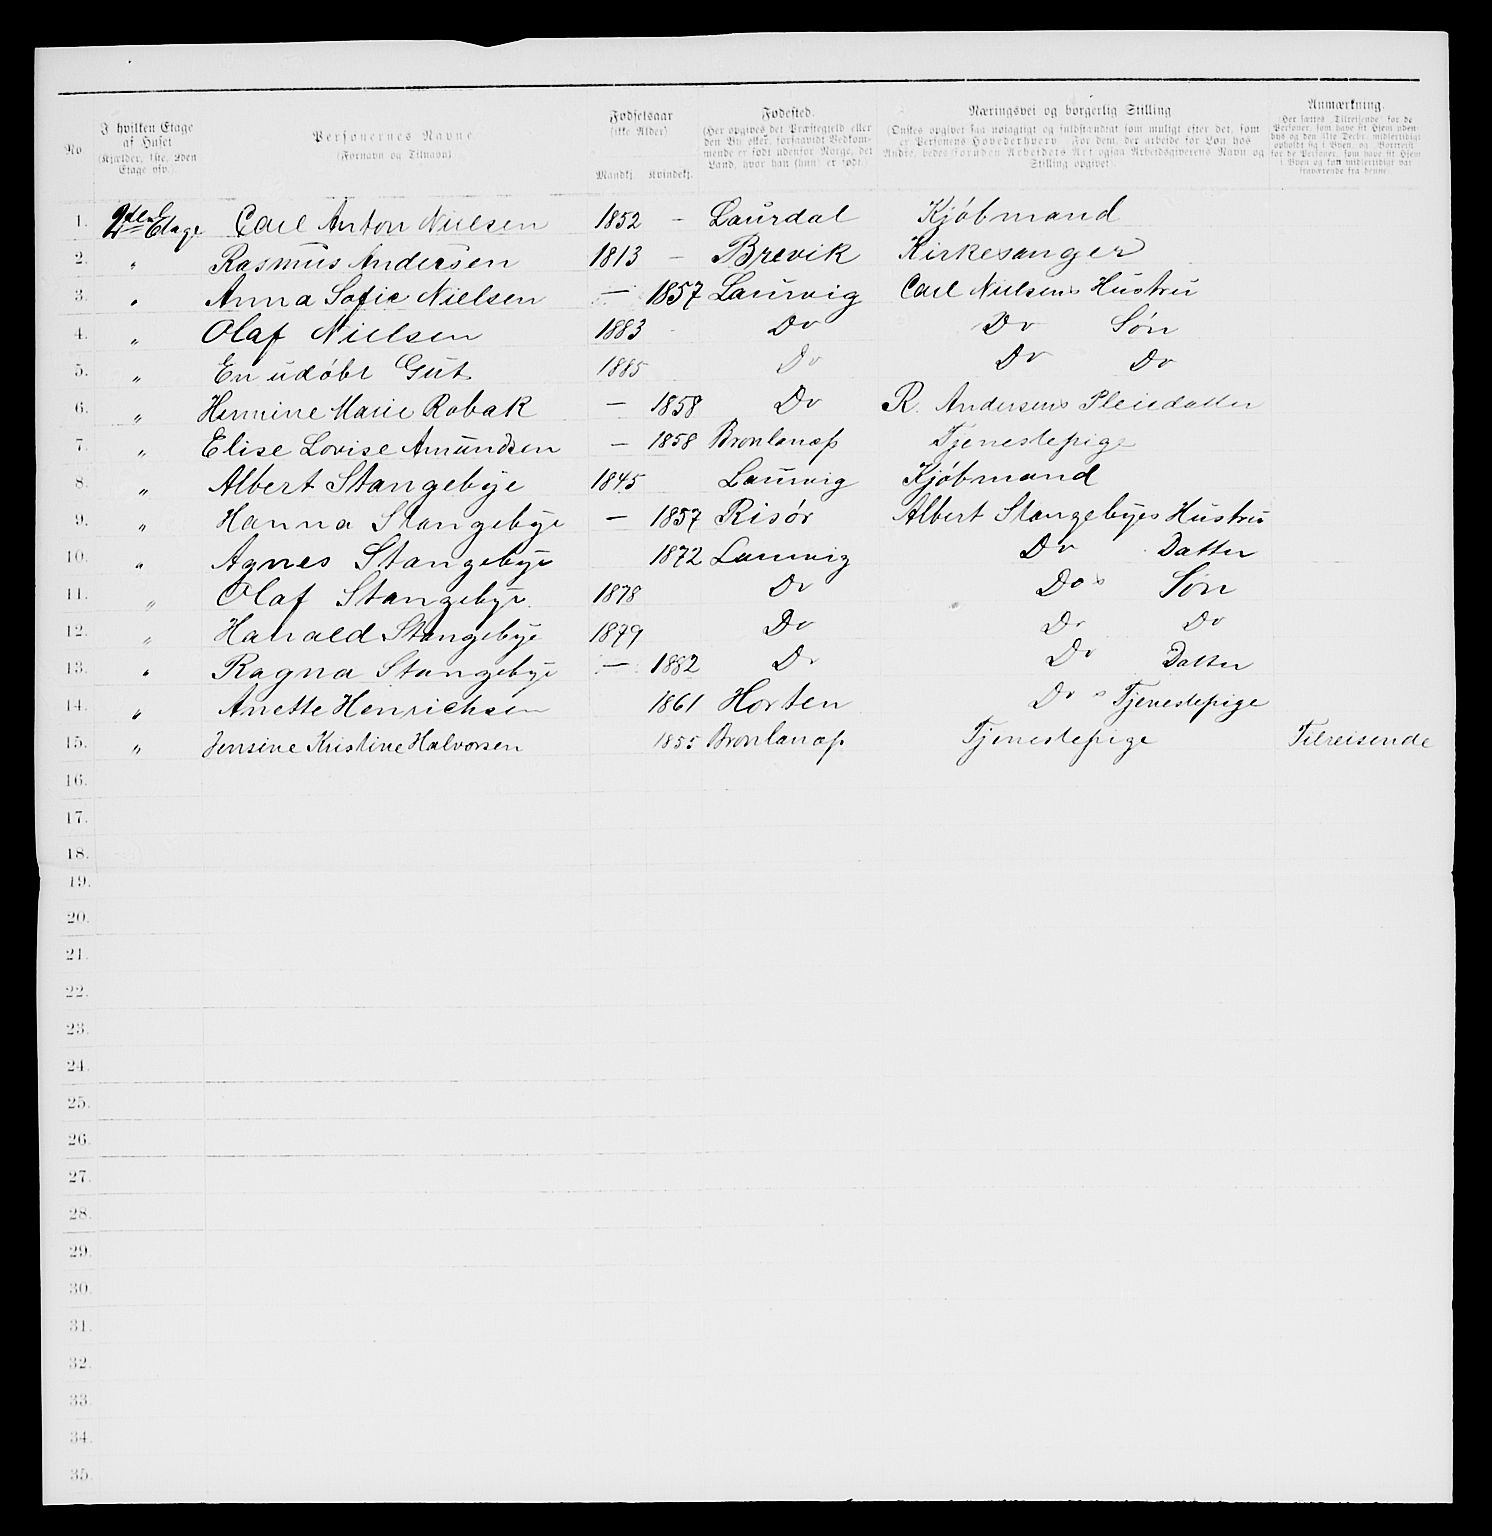 No
I hvilken Etage af Huset (Kjælder, 1ste, 2den Etage osv.).
Personernes Navne (Fornavn og Tilnavn)
Fødselsaar (ikke Alder) Mandkj. Kvindekj.
Fødested. (Her opgives det Præstegjeld eller den By eller, forsaavidt Vedkommende er født udenfor Norge, det Land, hvor han (hun) er født.)
Næringsvei og borgerlig Stilling (Ønskes opgivet saa nøiagtigt og fuldstændigt som muligt efter det, som er Personens Hovederhverv. For dem, der arbeide for Løn hos Andre, bedes foruden Arbeidets Art ogsaa Arbeidsgiverens Navn og Stilling opgivet.
Anmærkning. (Her sættes "Tilreisende" for de Personer, som have sit Hjem udenbys og den 31te Decbr. midlertidigt opholdt sig i Byen, og "Bortreist" for de Personer, som have sit Hjem i Byen og kun midlertidigt var fraværende fra denne.
1. 2den Etage Carl Anton Nielsen 1852 – Laurdal Kjøbmand
2. " Rasmus Andersen 1813 – Brevik Kirkesanger
3. " Anna Sofie Nielsen – 1857 Laurvig Carl Nielsens Hustru
4. " Olaf Nielsen 1883 - Do Do Søn
5. " En udøbt Gut 1885 Do Do Do
6. " Hermine Marie Robak – 1858 Do R. Andersens Pleiedatter
7. " Elise Lovise Amundsen – 1858 Brunlanæs Tjenestepige
8. " Albert Stangebye 1845 Laurvig Kjøbmand
9. " Hanna Stangebye – 1857 Risør Albert Stangebyes Hustru
10. " Agnes Stangebye 1872 Laurvig Do Datter
11. " Olaf Stangebye 1878 Do Do s Søn
12. " Harald Stangebye 1879 Do Do Do
13. " Ragna Stangebye – 1882 Do Do Datter
14. " Anette Henrichsen 1861 Horten Do s Tjenestepige
15. " Jensine Kristine Halvorsen 1855 Brunlanæs Tjenestepige Tilreisende
16.
17.
18.
19.
20.
21.
22.
23.
24.
25.
26.
27.
28.
29.
30.
31.
32.
33.
34.
35.